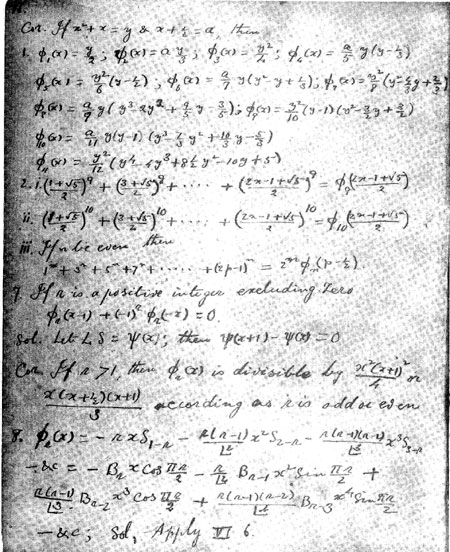 Cor. If x²+x = y & x+½ = a, then
1. φ₁(x) = y/2 ; φ₂(x) = a y/3 ; φ₃(x) = y²/4 ; φ₄(x) = a/5 y(y-⅓)
φ₅(x) = y²/6 (y-½) ; φ₆(x) = a/7 y(y²-y+⅓) ; φ₇(x) = y²/8 (y²-4/3 y+2/3)
φ₈(x) = a/9 y(y³-2y²+9/5 y-3/5) ; φ₉(x) = y²/10 (y-1)(y²-3/2 y+3/2)
φ₁₀(x) = a/11 y(y-1)(y³-7/3 y²+10/3 y-5/3)
φ₁₁(x) = y²/12 (y⁴-4y³+8½ y²-10y+5)
2. i. ((1+√5)/2)⁹ + ((3+√5)/2)⁹ + ..... + ((2x-1+√5)/2)⁹ = φ₉((2x-1+√5)/2)
ii. ((1+√5)/2)¹⁰ + ((3+√5)/2)¹⁰ + ..... + ((2x-1+√5)/2)¹⁰ = φ₁₀((2x-1+√5)/2)
iii. If n be even then
1ⁿ + 3ⁿ + 5ⁿ + 7ⁿ + ...... + (2p-1)ⁿ = 2ⁿ φₙ(p-½)
7. If r is a positive integer excluding zero
φᵣ(x-1) + (-1)ʳ φᵣ(-x) = 0.
Sol. Let LS = ψ(x); then ψ(x+1) - ψ(x) = 0
Cor. If r > 1, then φᵣ(x) is divisible by x²(x+1)²/4 or
x(x+½)(x+1)/3 according as r is odd or even
8. φᵣ(x) = - r x S₁₋ᵣ - r(r-1)/|2 x² S₂₋ᵣ - r(r-1)(r-2)/|3 x³ S₃₋ᵣ
- &c = - Bᵣ x Cos πr/2 - r/|2 Bᵣ₋₁ x² Sin πr/2 +
r(r-1)/|3 Bᵣ₋₂ x³ Cos πr/2 + r(r-1)(r-2)/|4 Bᵣ₋₃ x⁴ Sin πr/2
- &c ; Sol. Apply VI 6.